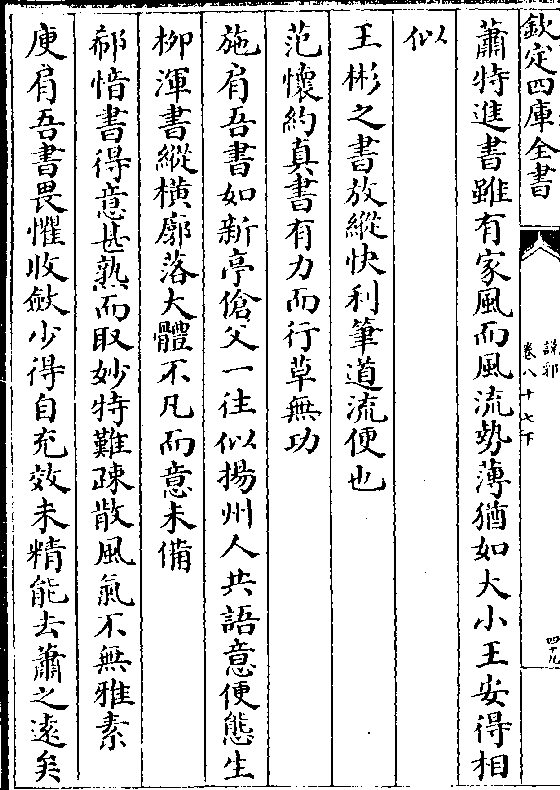 欽定四庫全書
說郛
卷八十七下
四十九
蕭特進書雖有家風而風流勢薄猶如大小王安得相
似
王彬之書放縱快利筆道流便也
范懷約真書有力而行草無功
施肩吾書如新亭傖父一往似揚州人共語意便態生
柳渾書縱橫廓落大體不凡而意未備
郗愔書得意甚熟而取妙特難疎散風氣不無雅素
庾肩吾書畏懼收斂少得自充效未精能去蕭之遠矣